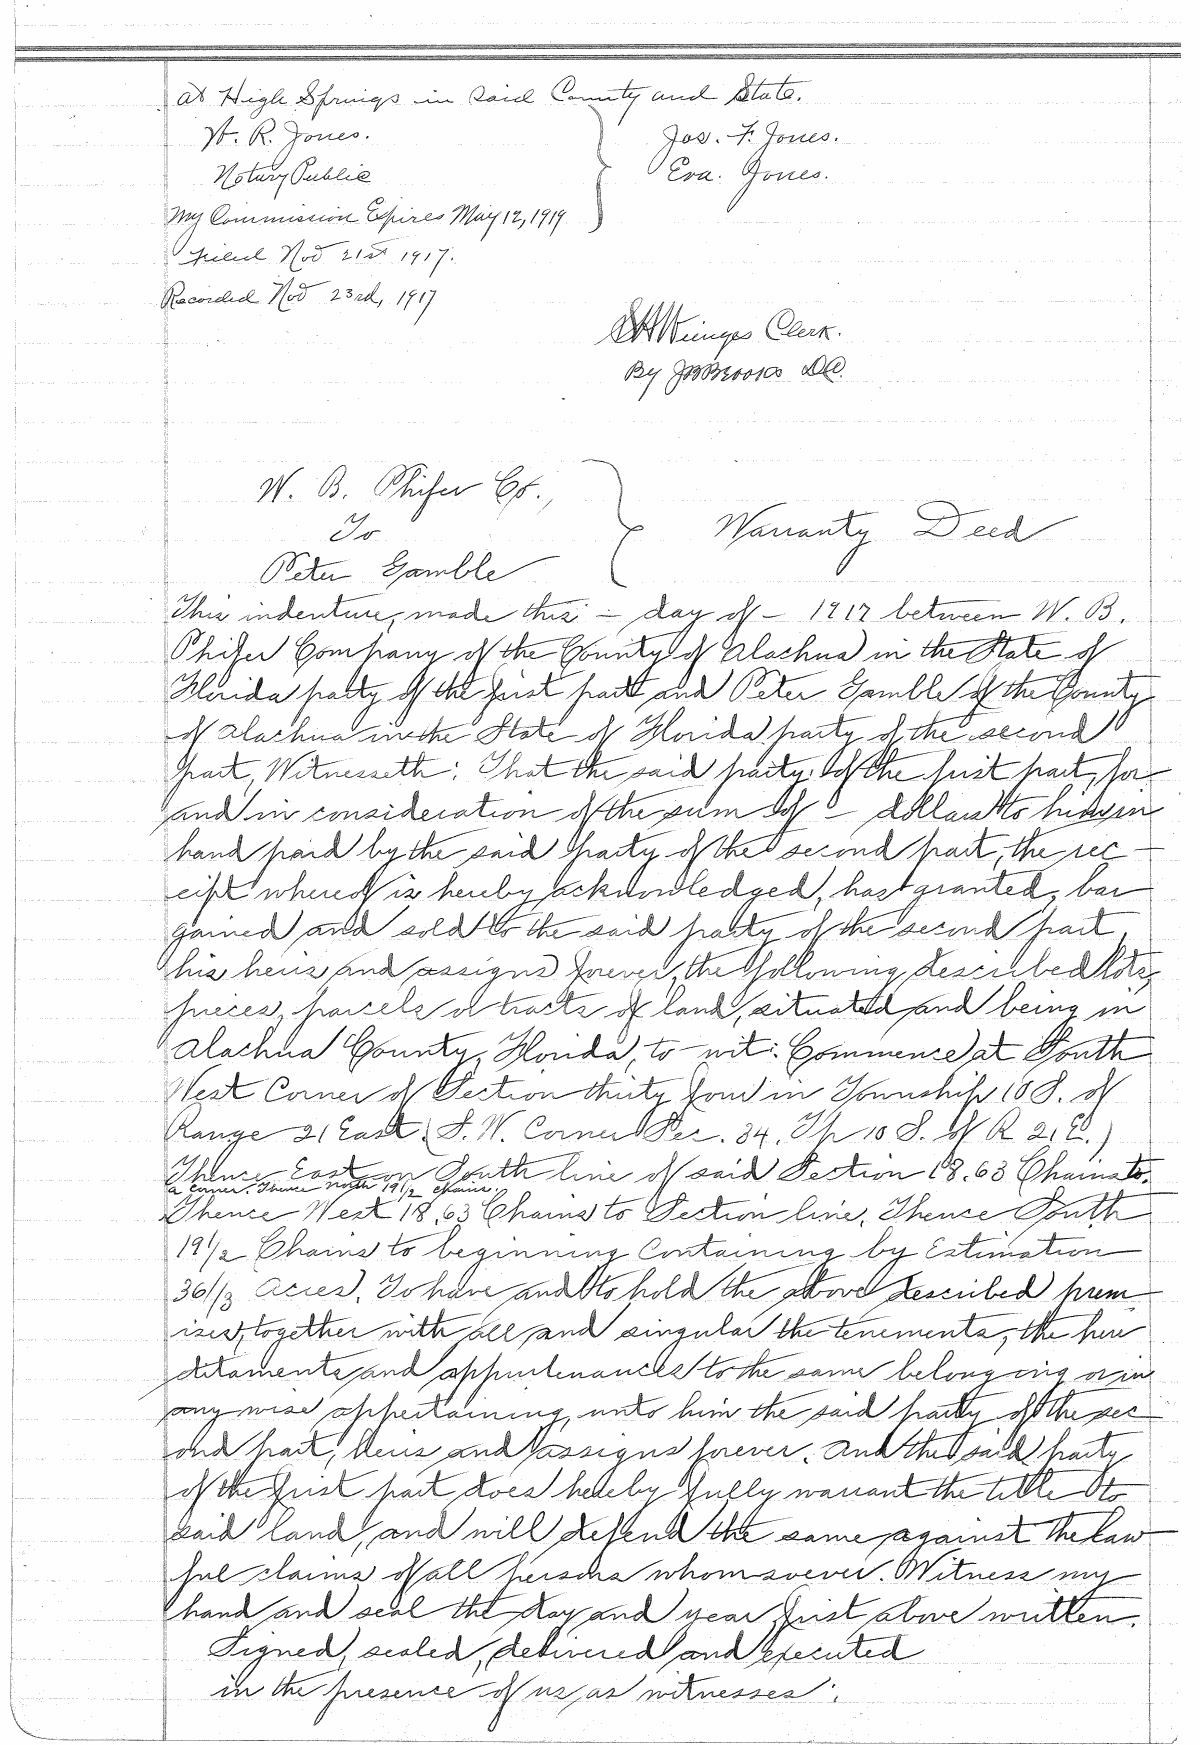 at High Springs in said County and State.
W. R. Jones. Jos. F. Jones.
Notary Public Eva. Jones.
My Commission Expires May 12, 1919
Filed Nov 21st 1917.
Recorded Nov 23rd, 1917
Wienges Clerk.
By JB Brooks D.C.
W. B. Phifer Co.,
To
Warranty Deed
Peter Gamble
This indenture, made this – day of – 1917 between W. B.
Phifer Company of the County of Alachua in the State of
Florida party of the first part and Peter Gamble of the County
of Alachua in the State of Florida party of the second
part, Witnesseth: That the said party of the first part, for
and in consideration of the sum of – dollars to him in
hand paid by the said party of the second part, the rec
eipt whereof is hereby acknowledged, has granted, bar
gained and sold to the said party of the second part,
his heirs and assigns forever, the following described lots,
pieces, parcels or tracts of land, situated and being in
Alachua County, Florida, to wit: Commence at South
West Corner of Section thirty four in Township 10 S. of
Range 21 East (S. W. Corner Sec. 34, Tp 10 S. of R 21 E.)
Thence East on South line of said Section 18.63 Chains to
a corner. Thence north 19 1/2 chains,
Thence West 18.63 Chains to Section line, Thence South
19 1/2 Chains to beginning Containing by Estimation
36 1/3 Acres. To have and to hold the above described prem
ises, together with all and singular the tenements, the here
ditaments and appurtenances to the same belonging or in
any wise appertaining, unto him the said party of the sec
ond part, heirs and assigns forever. And the said party
of the first part does hereby fully warrant the title to
said land, and will defend the same against the law
ful claims of all persons whomsoever. Witness my
hand and seal the day and year first above written.
Signed, sealed, delivered and executed
in the presence of us as witnesses: